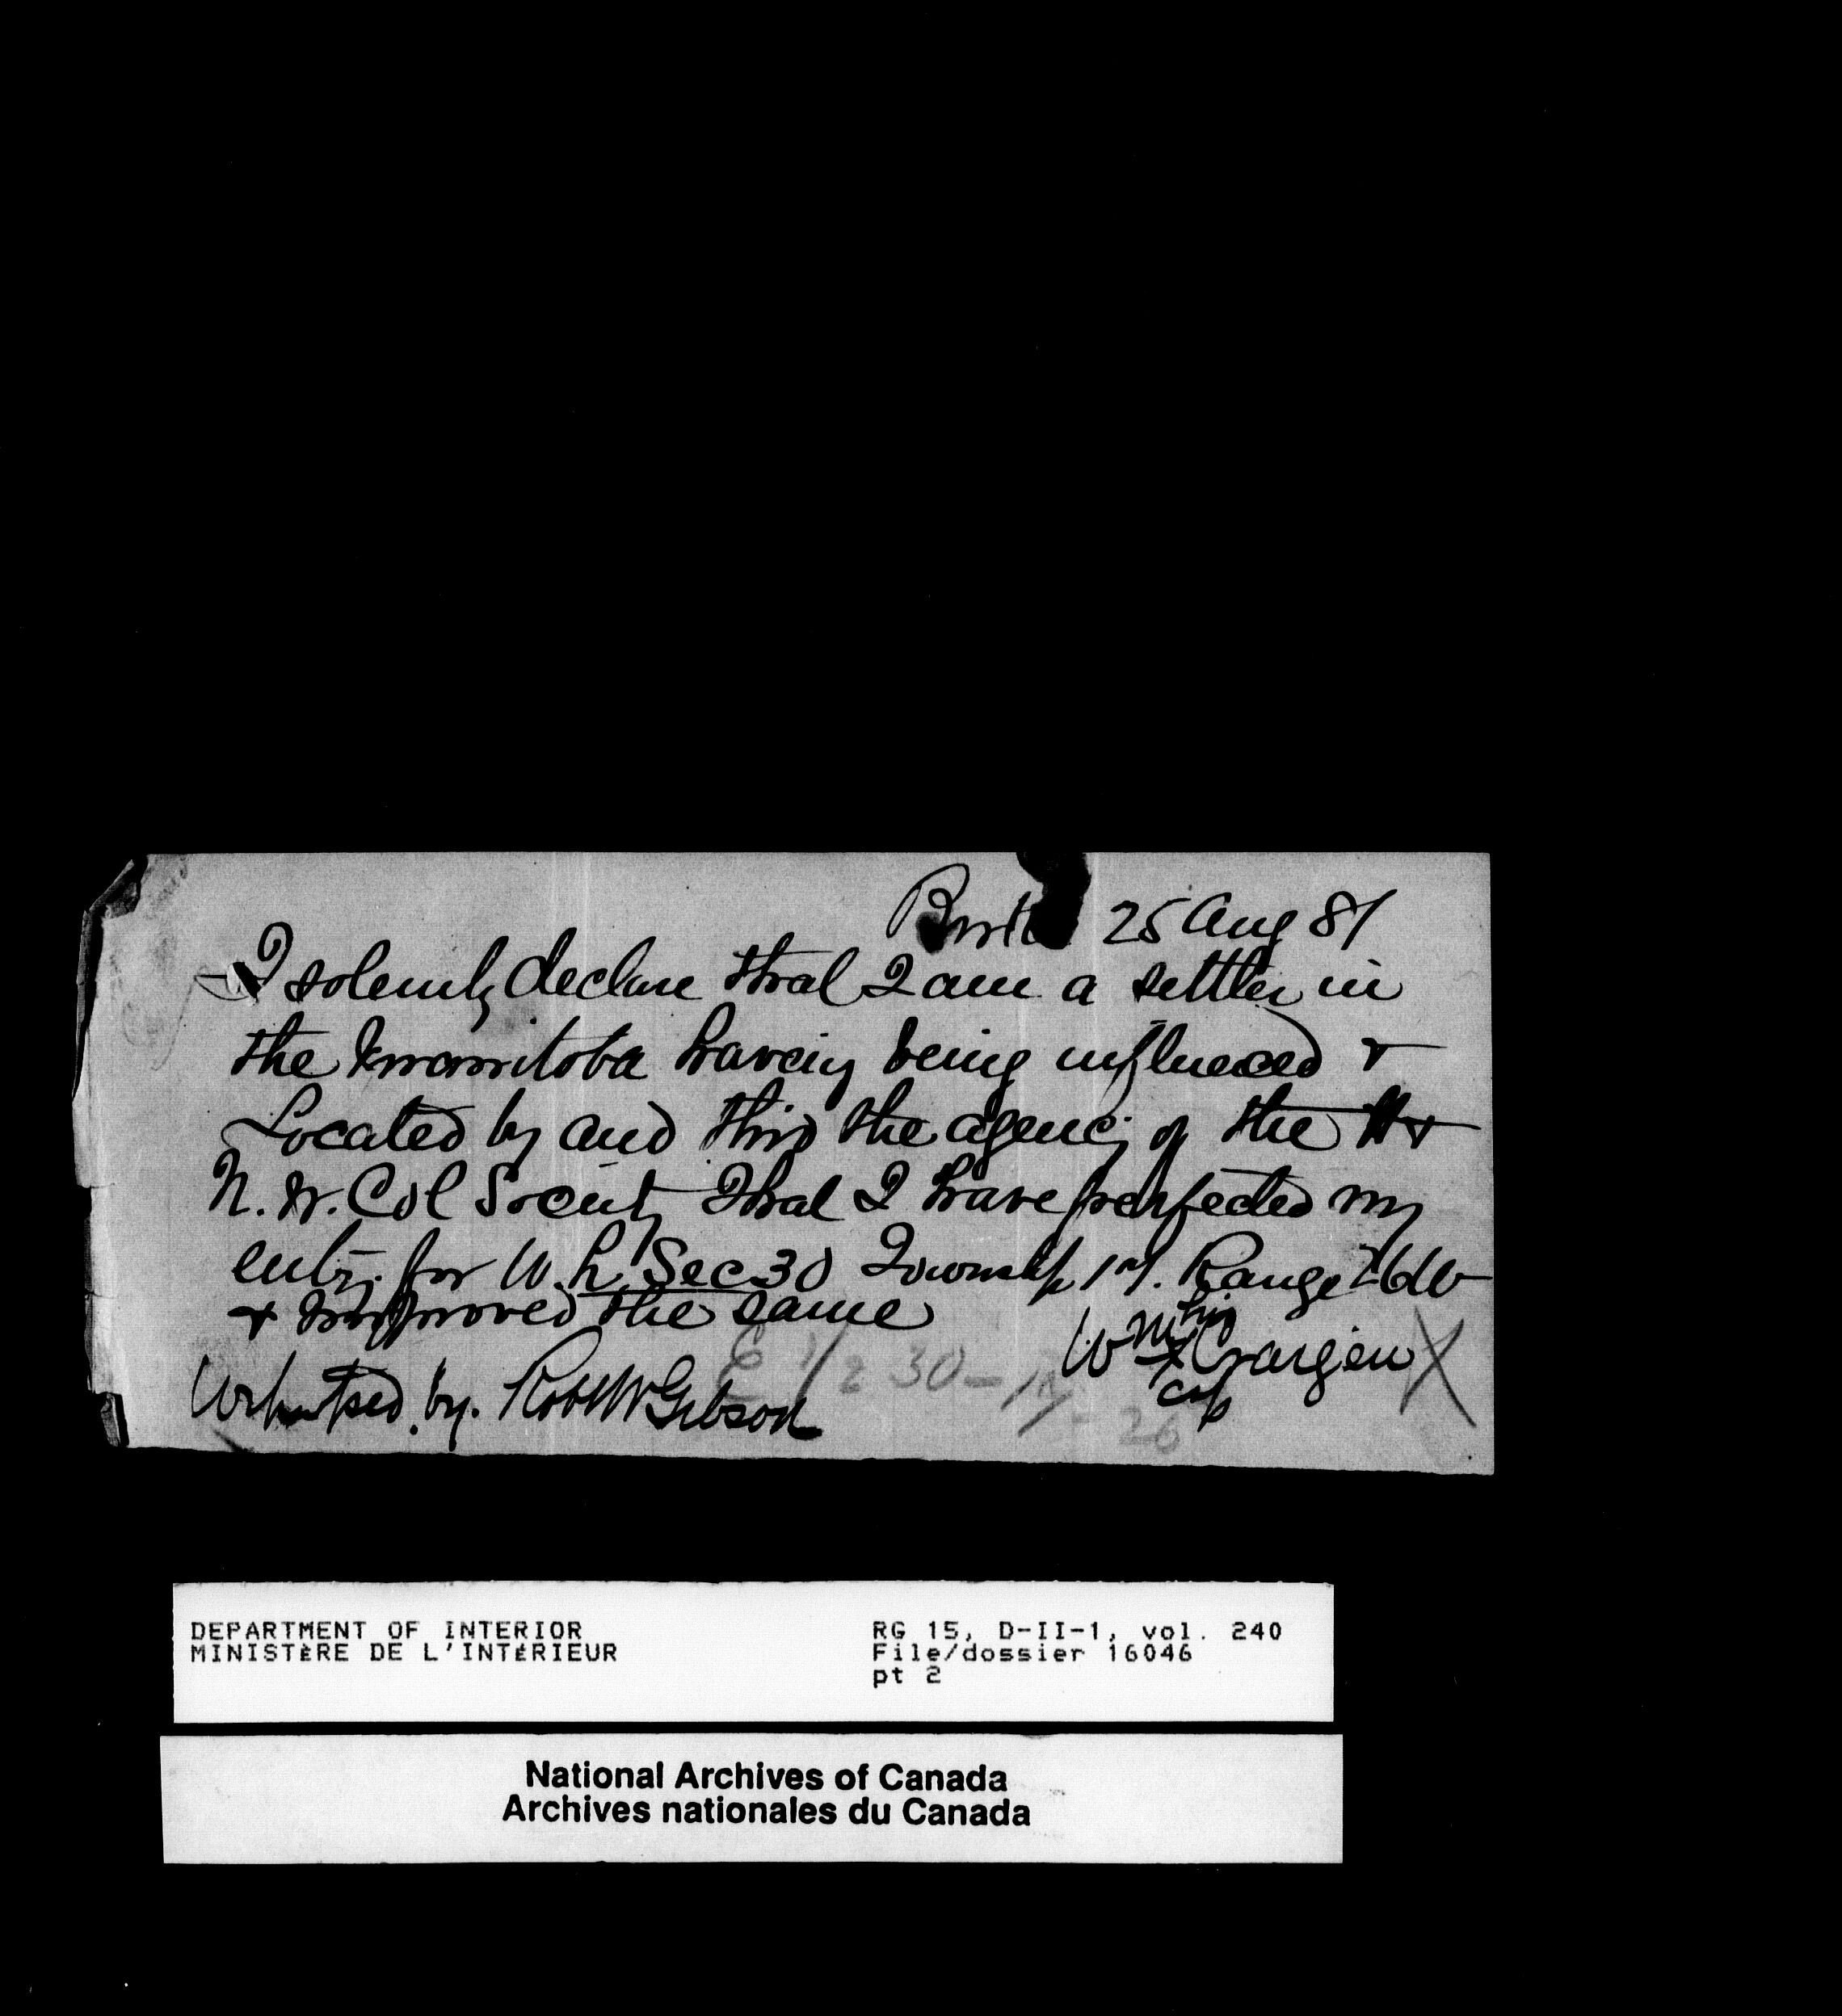 Birtle 25 Aug 81
I solemnly declare that I am a settler in
the Manitoba having being influenced &
Located by and thro the agency of the M &
N. W. Col Society That I have perfected my
entry for W. h Sec 30 Township 17. Range 26 W
& improved the same
Wm his x Craigen X
mark
Witnessed by. Robt W Gibson
E 1/2 30 - 17 - 26
DEPARTMENT OF INTERIOR
MINISTÈRE DE L'INTÉRIEUR
RG 15, D-II-1, vol. 240
File/dossier 16046
pt 2
National Archives of Canada
Archives nationales du Canada